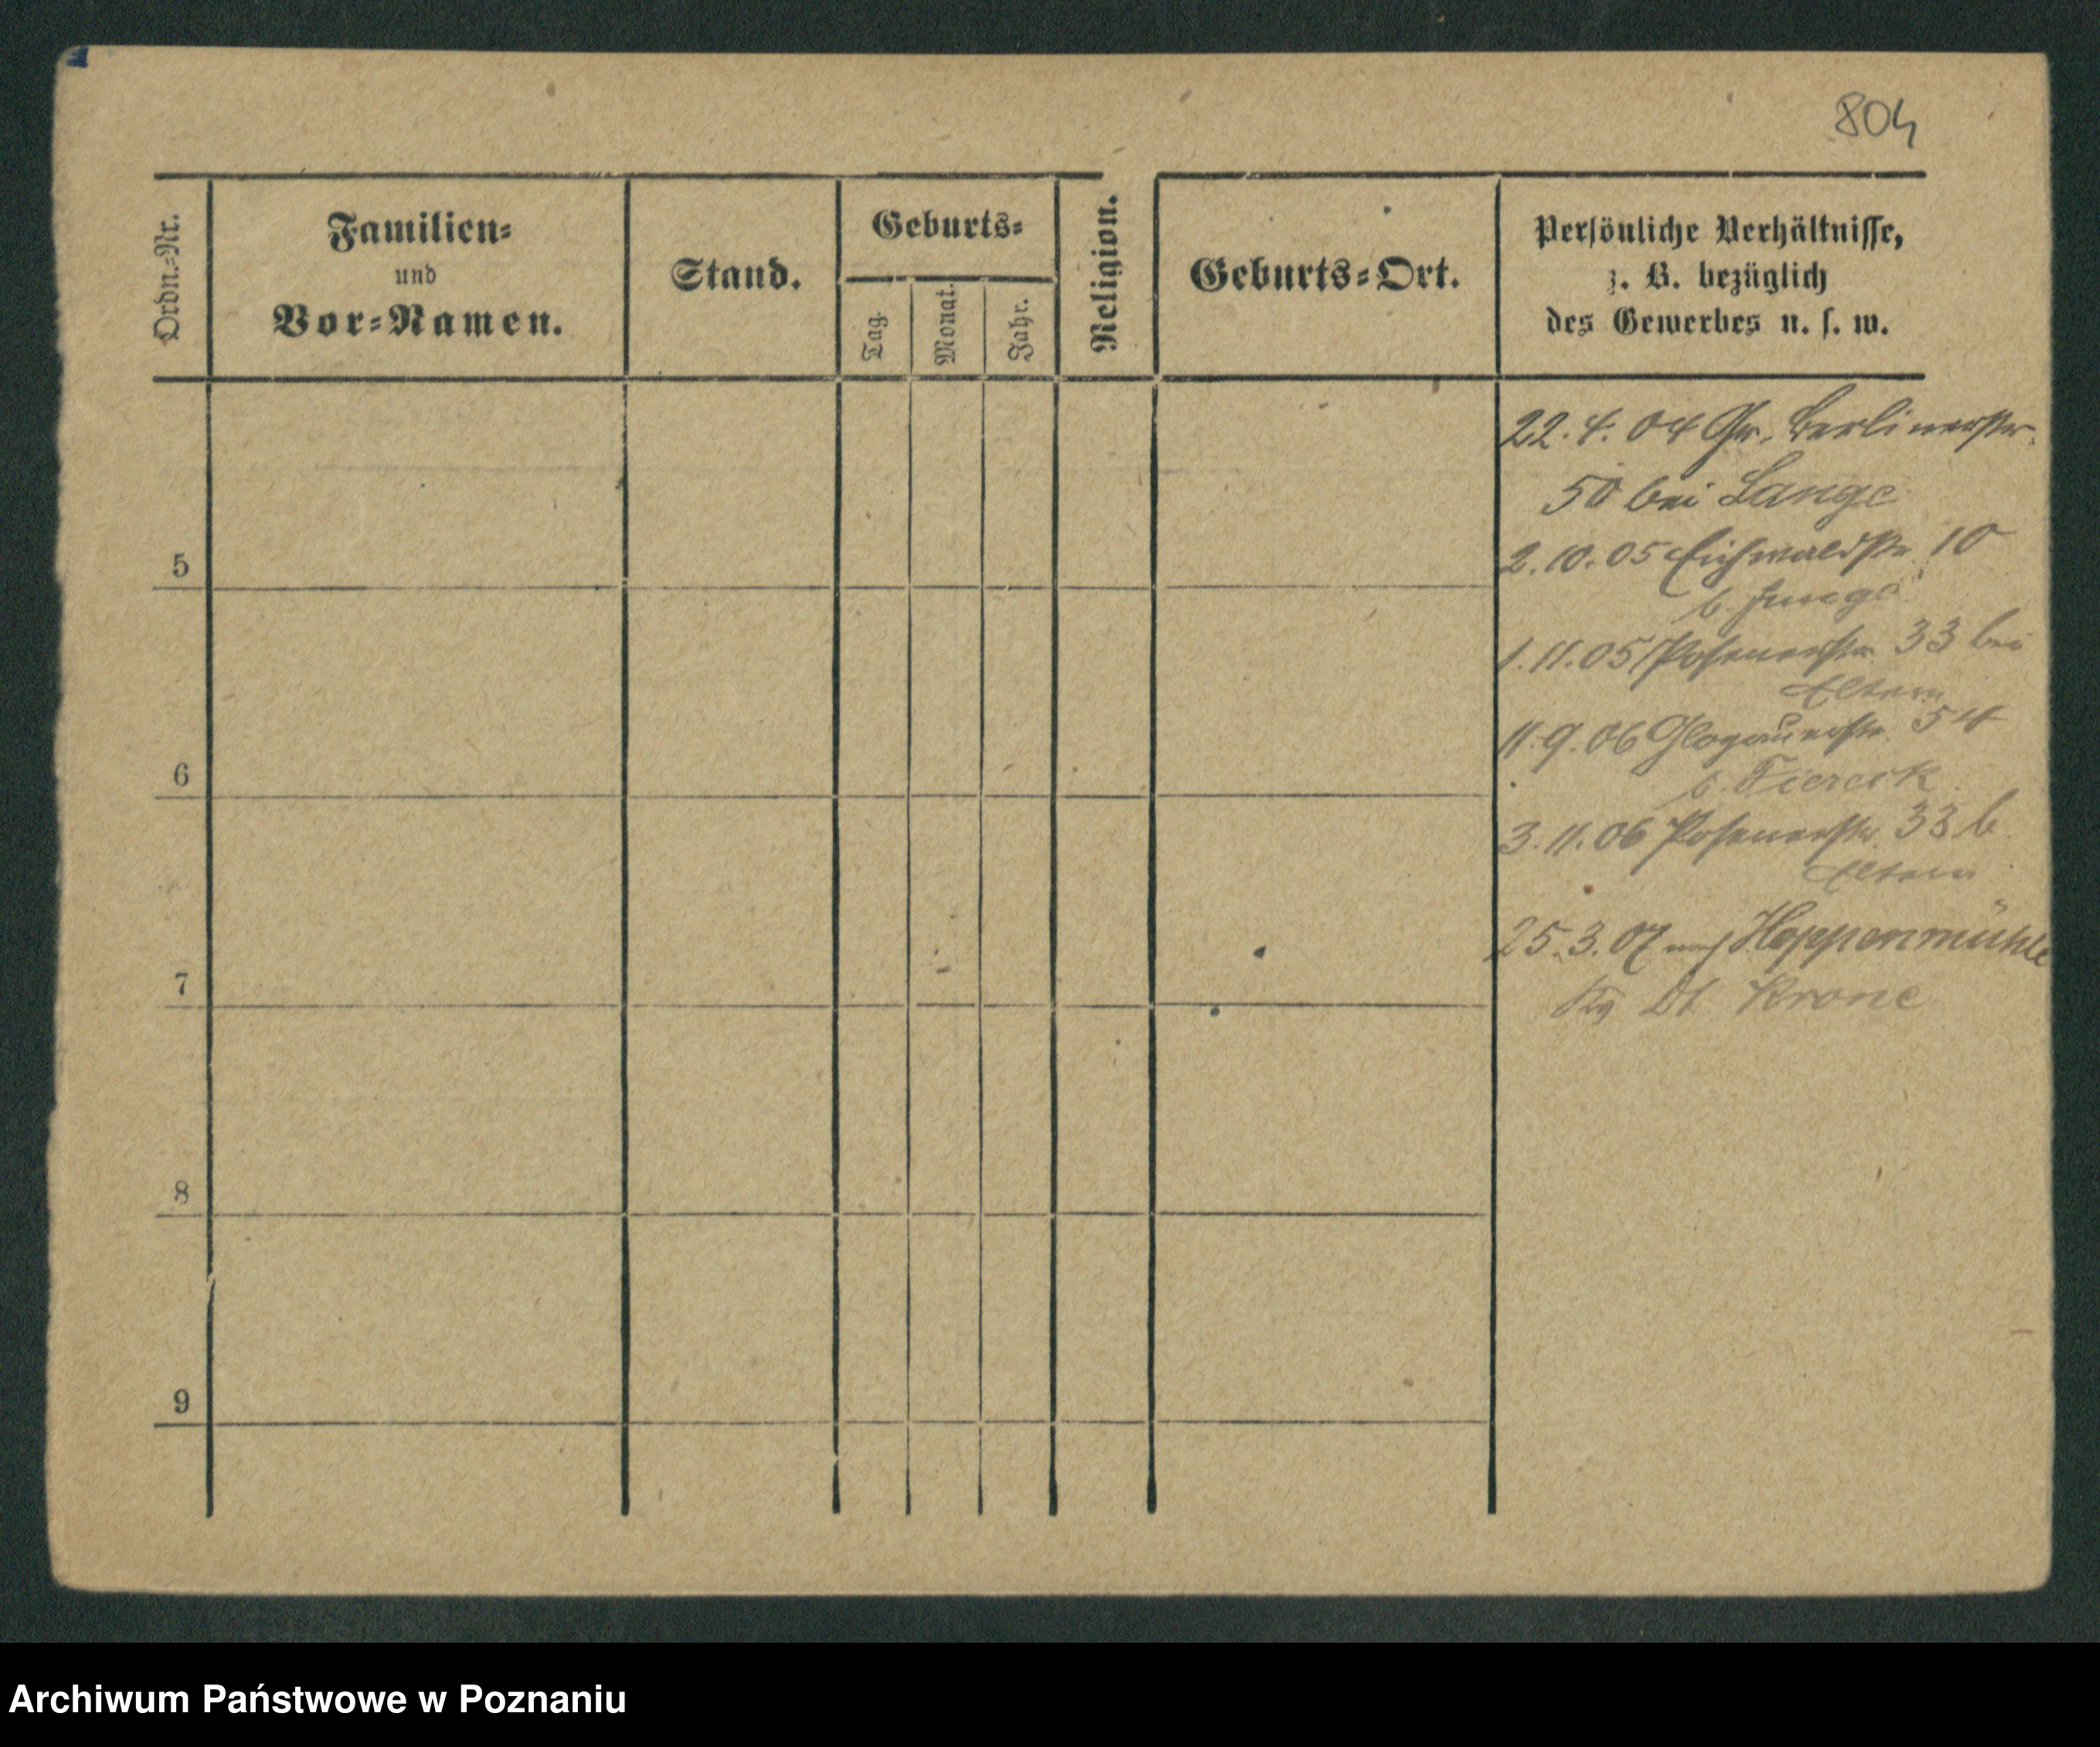 804
Ordn.-Nr.
Familien-
und
Vor-Namen.
Stand.
Geburts-
Tag.
Monat.
Jahr.
Religion.
Geburts-Ort.
Persönliche Verhältnisse,
z. B. bezüglich
des Gewerbes u. s. w.
22. 4. 04 Gr. Berlinerstr.
50 bei Lange
2. 10. 05 Eichwaldstr. 10
b. Junge
1. 11. 05 Posenerstr. 33 bei
Eltern
11. 9. 06 Glogauerstr. 54
b.
3. 11. 06 Posenerstr. 33 b
Eltern
25. 3. 07 nach Hoppenmühle
Dt. Krone
5
6
7
8
9
Archiwum Państwowe w Poznaniu